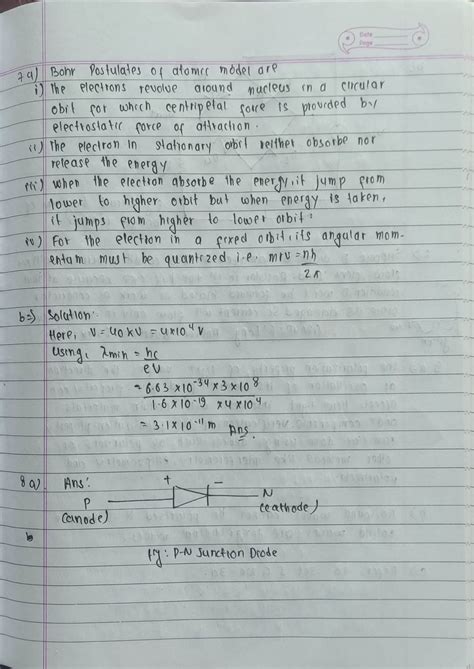 Date
Page
7 a) Bohr Postulates of atomic model are
i) The electrons revolve around nucleus in a circular
obit for which centripetal force is provided by
electrostatic force of attraction.
ii) The electron in stationary orbit neither absorbe nor
release the energy
iii) When the electron absorbe the energy, it jump from
lower to higher orbit but when energy is taken,
it jumps from higher to lower orbit.
iv) For the electron in a fixed orbit, its angular mom-
entum must be quantized i.e. mrv = nh/2π
b=) Solution:
Here, V = 40 KV = 4×10⁴ V
Using, λmin = hc/eV
= 6.63 × 10⁻³⁴ × 3 × 10⁸ / 1.6 × 10⁻¹⁹ × 4 × 10⁴
= 3.1 × 10⁻¹¹ m Ans.
8 a) Ans:
+ −
P N
(anode) (cathode)
b
fig: P-N Junction Diode